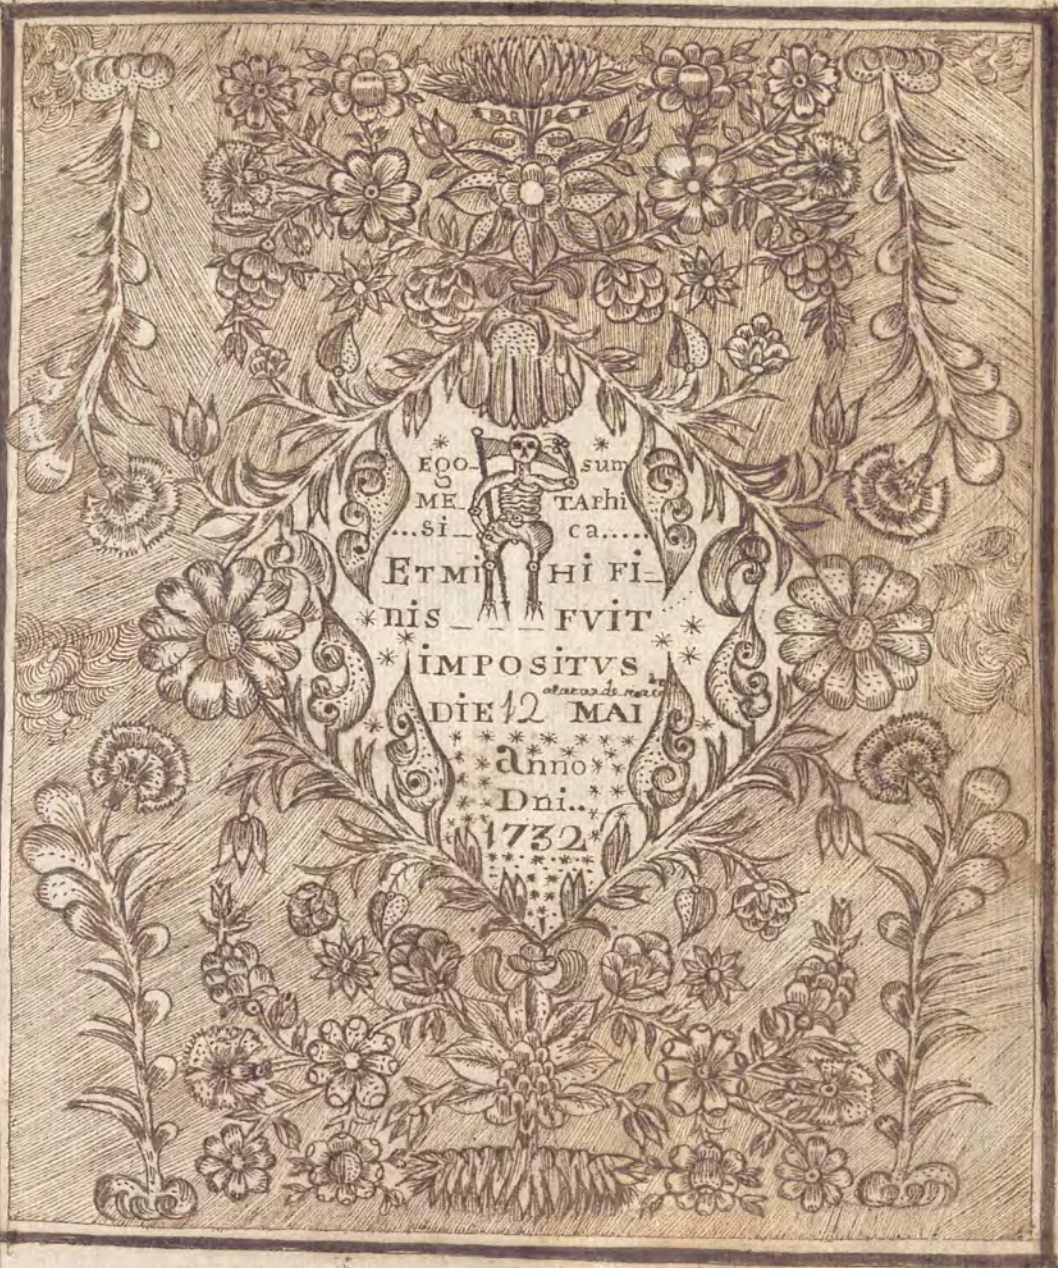 Ego_ sum
ME_ TAPhi
...si_ ca.....
ET MI HI FI_
nis _ _ _ FVIT
IMPOSITVS
DIE 12 MAI
anno
Dni..
1732